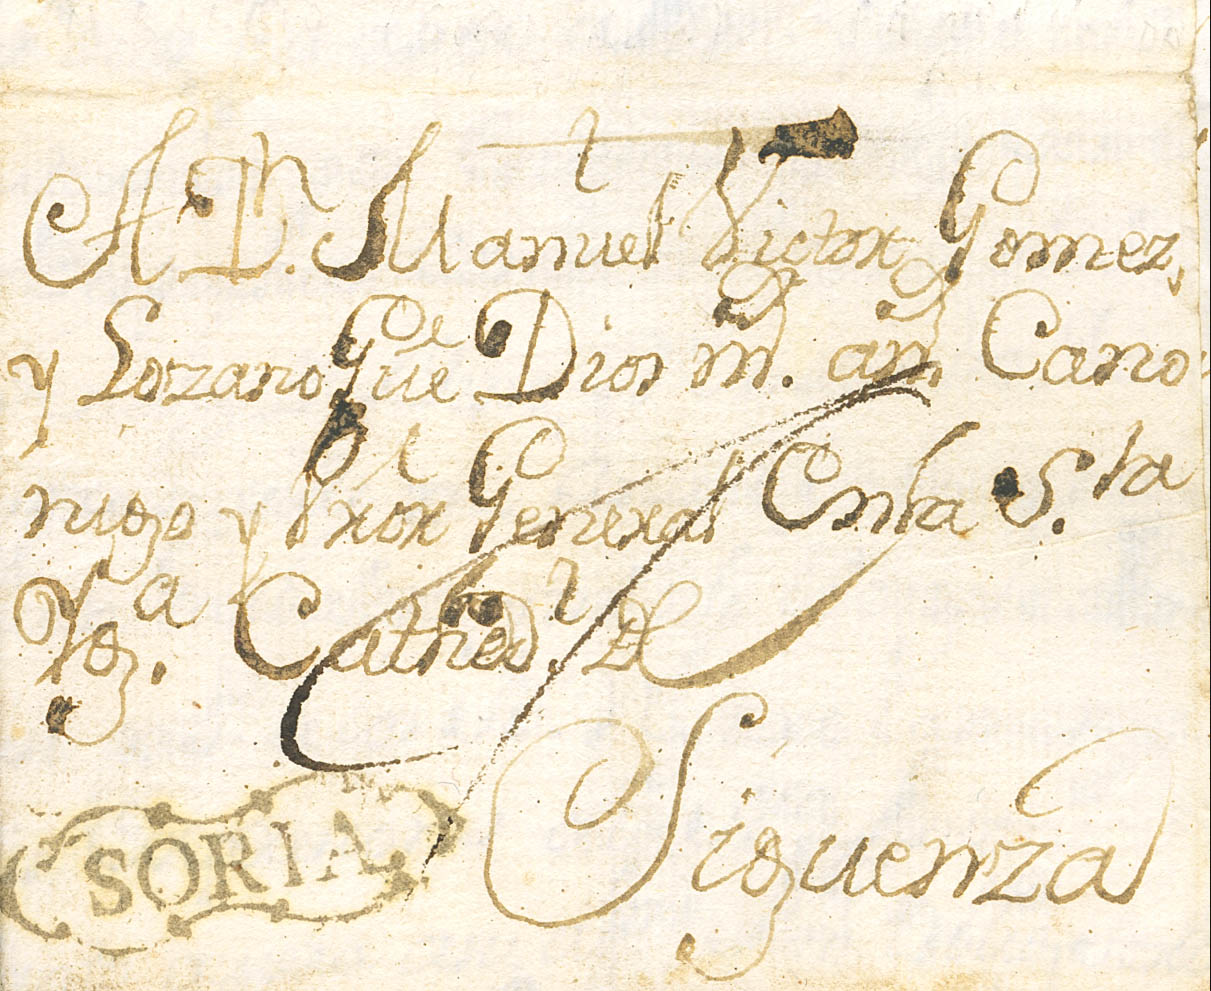 A Dn. Manuel Victor Gomez,
y Lozano Gue Dios ms. as. Cano-
nigo y Pror General En la S.ta
Yga. Cathedl. de
Siguenza
SORIA